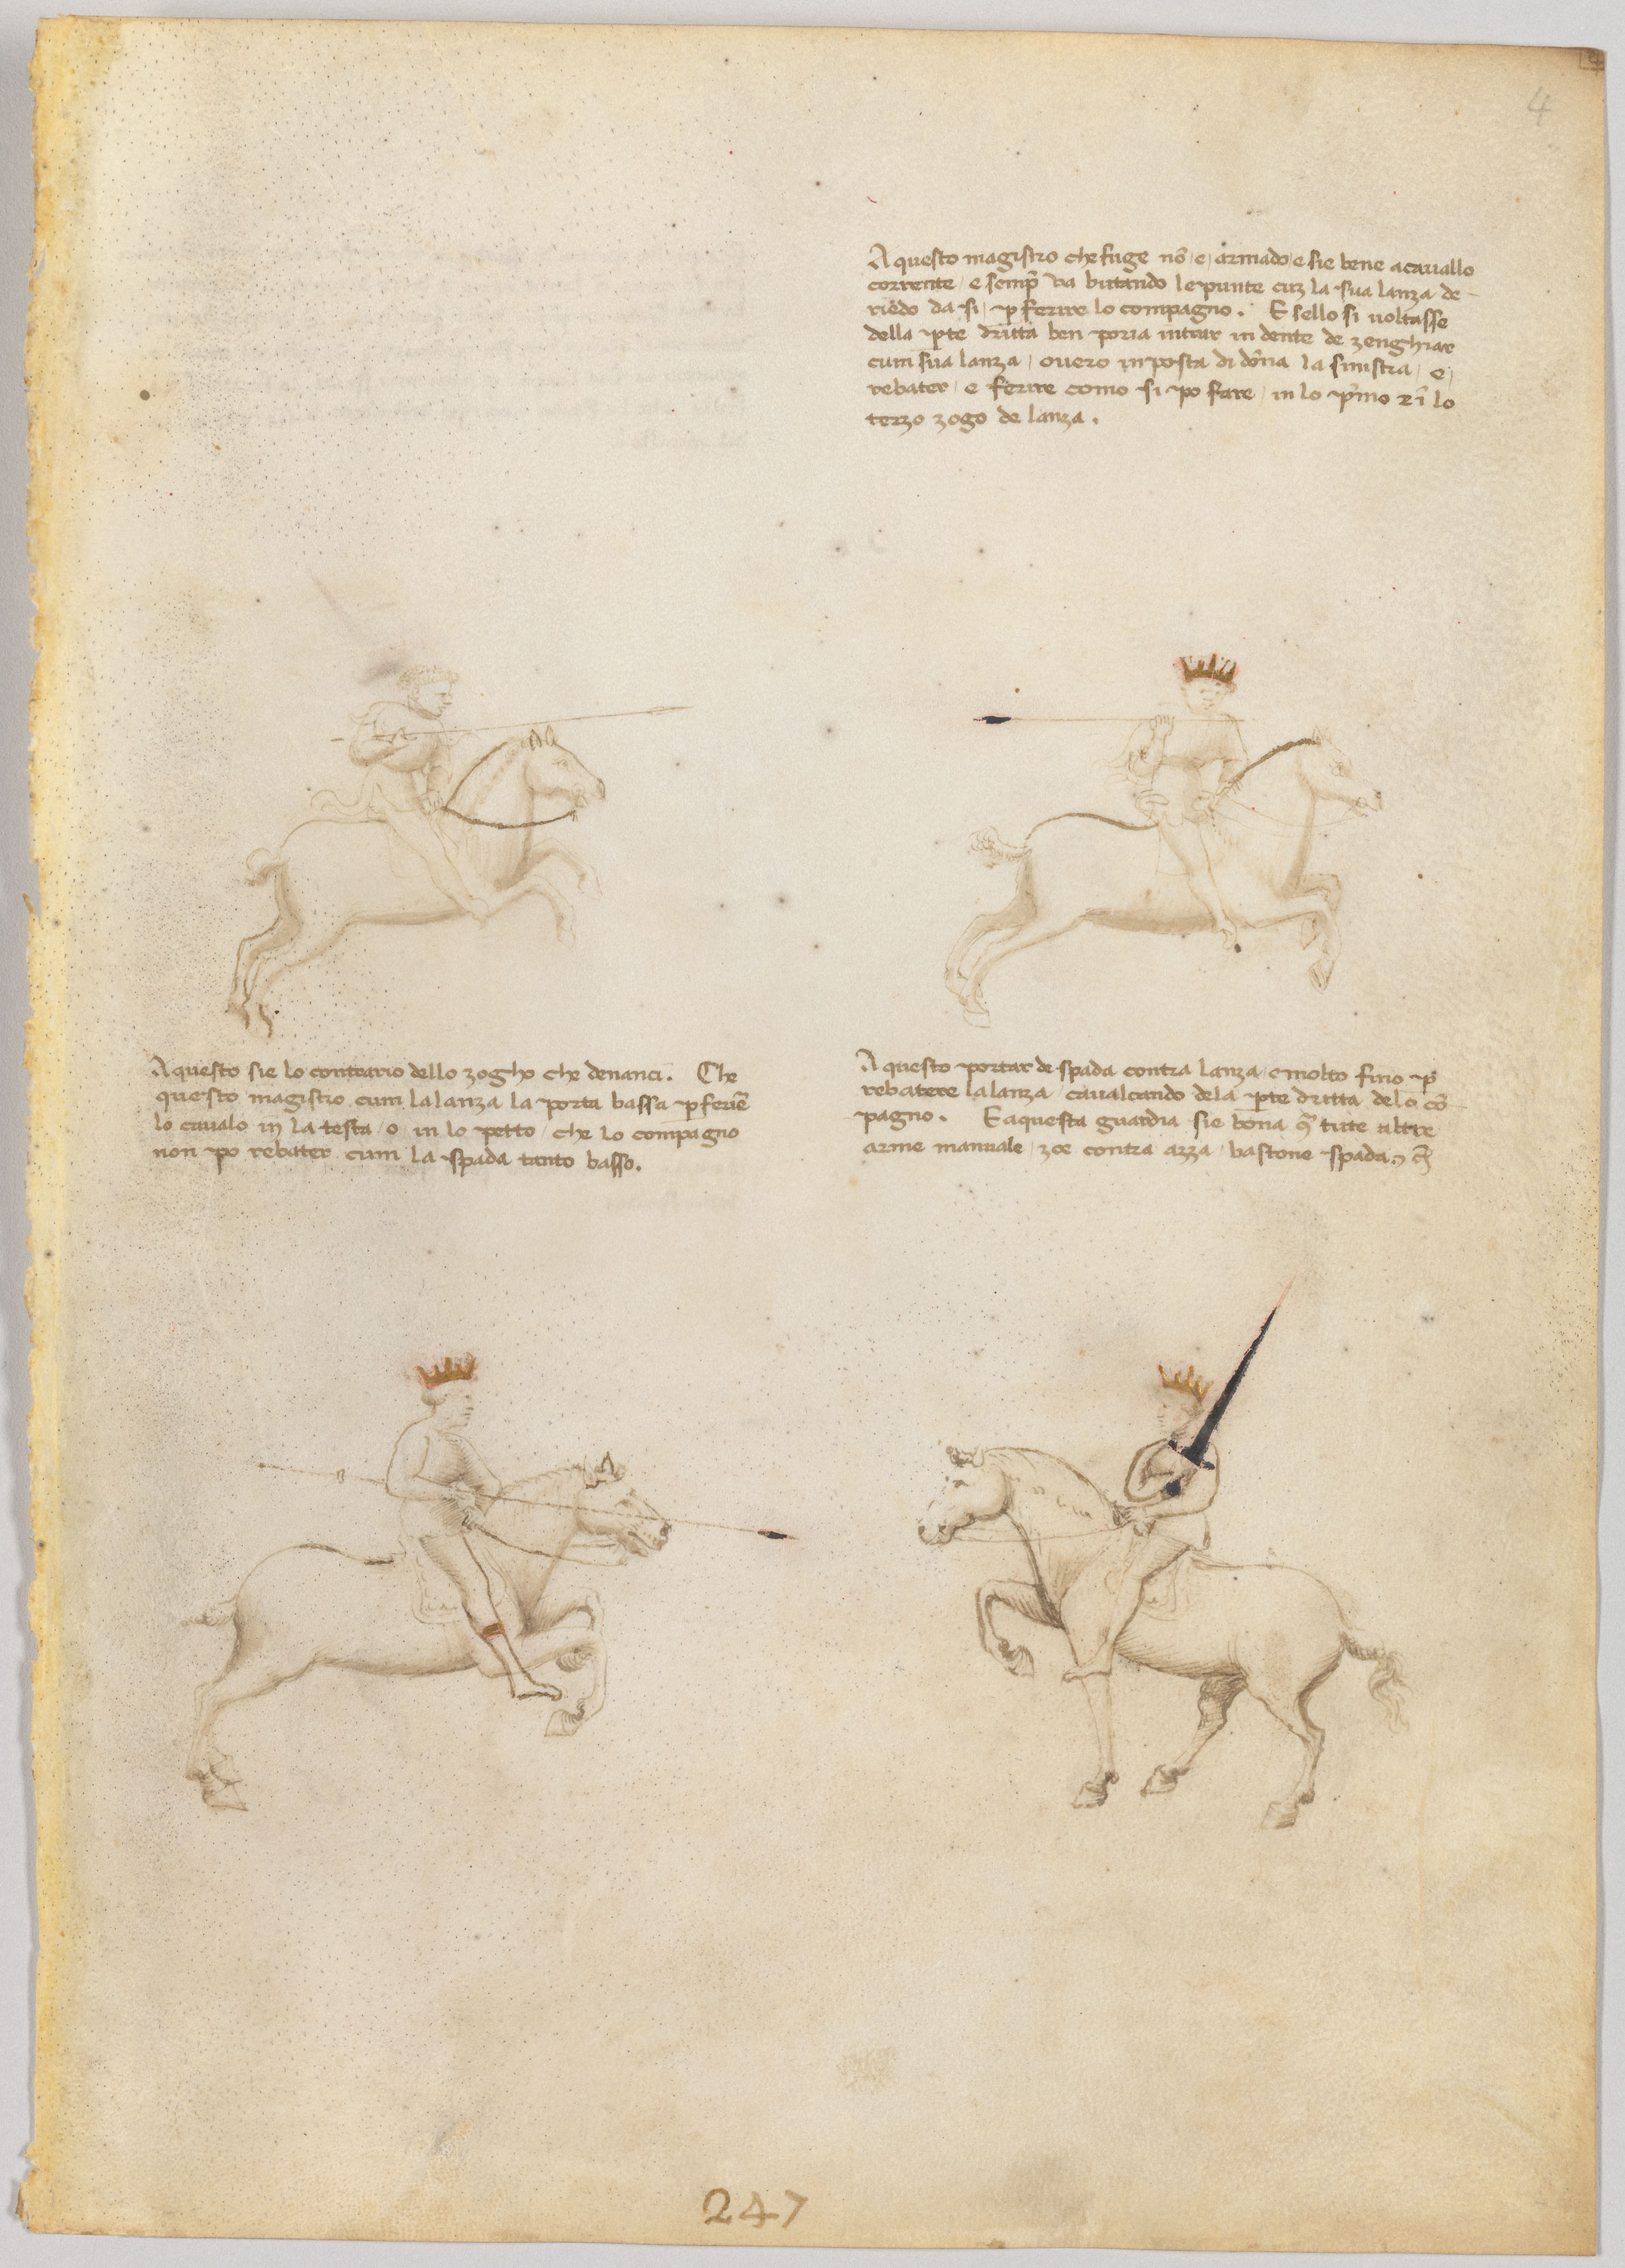 4
Aquesto magistro che fuge nō e armado e sie bene acauallo
corrente e semp̄ va butando le punte cuz la sua lanza de-
riēdo da si p ferire lo compagno. E sello si voltasse
della pte dritta ben poria intrar in dente de zenghiar
cum sua lanza, ouero in posta di dōna la sinistra, e,
rebater e ferire como si po fare in lo p̄mo z ī lo
terzo zogo de lanza.
Aquesto sie lo contrario dello zogho che denanci. Che
questo magistro cum la lanza la porta bassa p ferir̄
lo cauallo in la testa o in lo petto che lo compagno
non po rebater cum la spada tanto basso.
Aquesto portar de spada contra lanza e molto fino p
rebatere la lanza caualcando dela pte dritta delo cō-
pagno. E aquesta guardia sie bona 9tra tute altre
arme manuale zoe contra azza bastone spada, 7 c̄
247